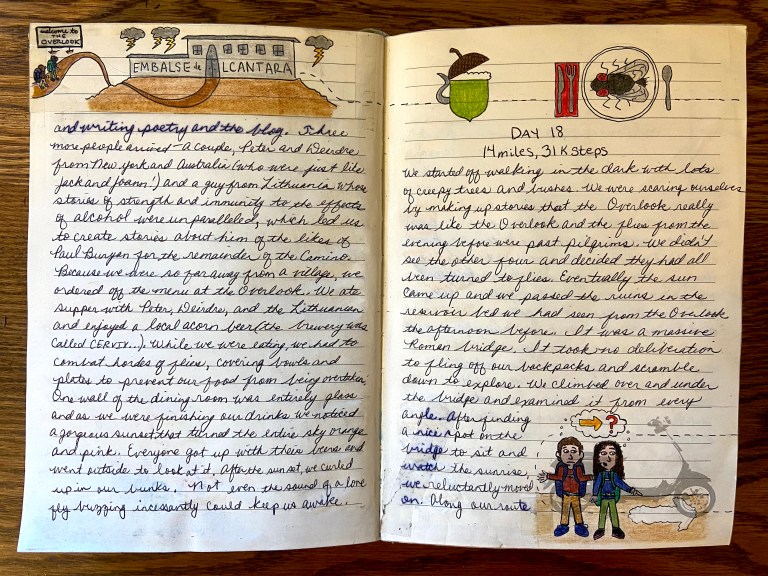 welcome to
THE
OVERLOOK
EMBALSE de ALCANTARA
and writing poetry and the blog. Three
more people arrived - a couple, Peter and Deirdre
from New York and Australia (who were just like
Jack and Joann!) and a guy from Lithuania whose
stories of strength and immunity to the effects
of alcohol were unparalleled, which led us
to create stories about him of the likes of
Paul Bunyan for the remainder of the Camino.
Because we were so far away from a village, we
ordered off the menu at the Overlook. We ate
supper with Peter, Deirdre, and the Lithuanian
and enjoyed a local acorn beer (the brewery was
called CERVIX...). While we were eating, we had to
combat hordes of flies, covering bowls and
plates to prevent our food from being overtaken.
One wall of the dining room was entirely glass
and as we were finishing our drinks we noticed
a gorgeous sunset that turned the entire sky orange
and pink. Everyone got up with their beers and
went outside to look at it. After the sunset, we curled
up in our bunks. Not even the sound of a lone
fly buzzing incessantly could keep us awake.
DAY 18
14 miles, 31K steps
We started off walking in the dark with lots
of creepy trees and bushes. We were scaring ourselves
by making up stories that the Overlook really
was like the Overlook and the flies from the
evening before were past pilgrims. We didn't
see the other four and decided they had all
been turned to flies. Eventually the sun
came up and we passed the ruins in the
reservoir bed we had seen from the Overlook
the afternoon before. It was a massive
Roman bridge. It took no deliberation
to fling off our backpacks and scramble
down to explore. We climbed over and under
the bridge and examined it from every
angle. After finding
a nice spot on the
bridge to sit and
watch the sunrise,
we reluctantly moved
on. Along our route
?